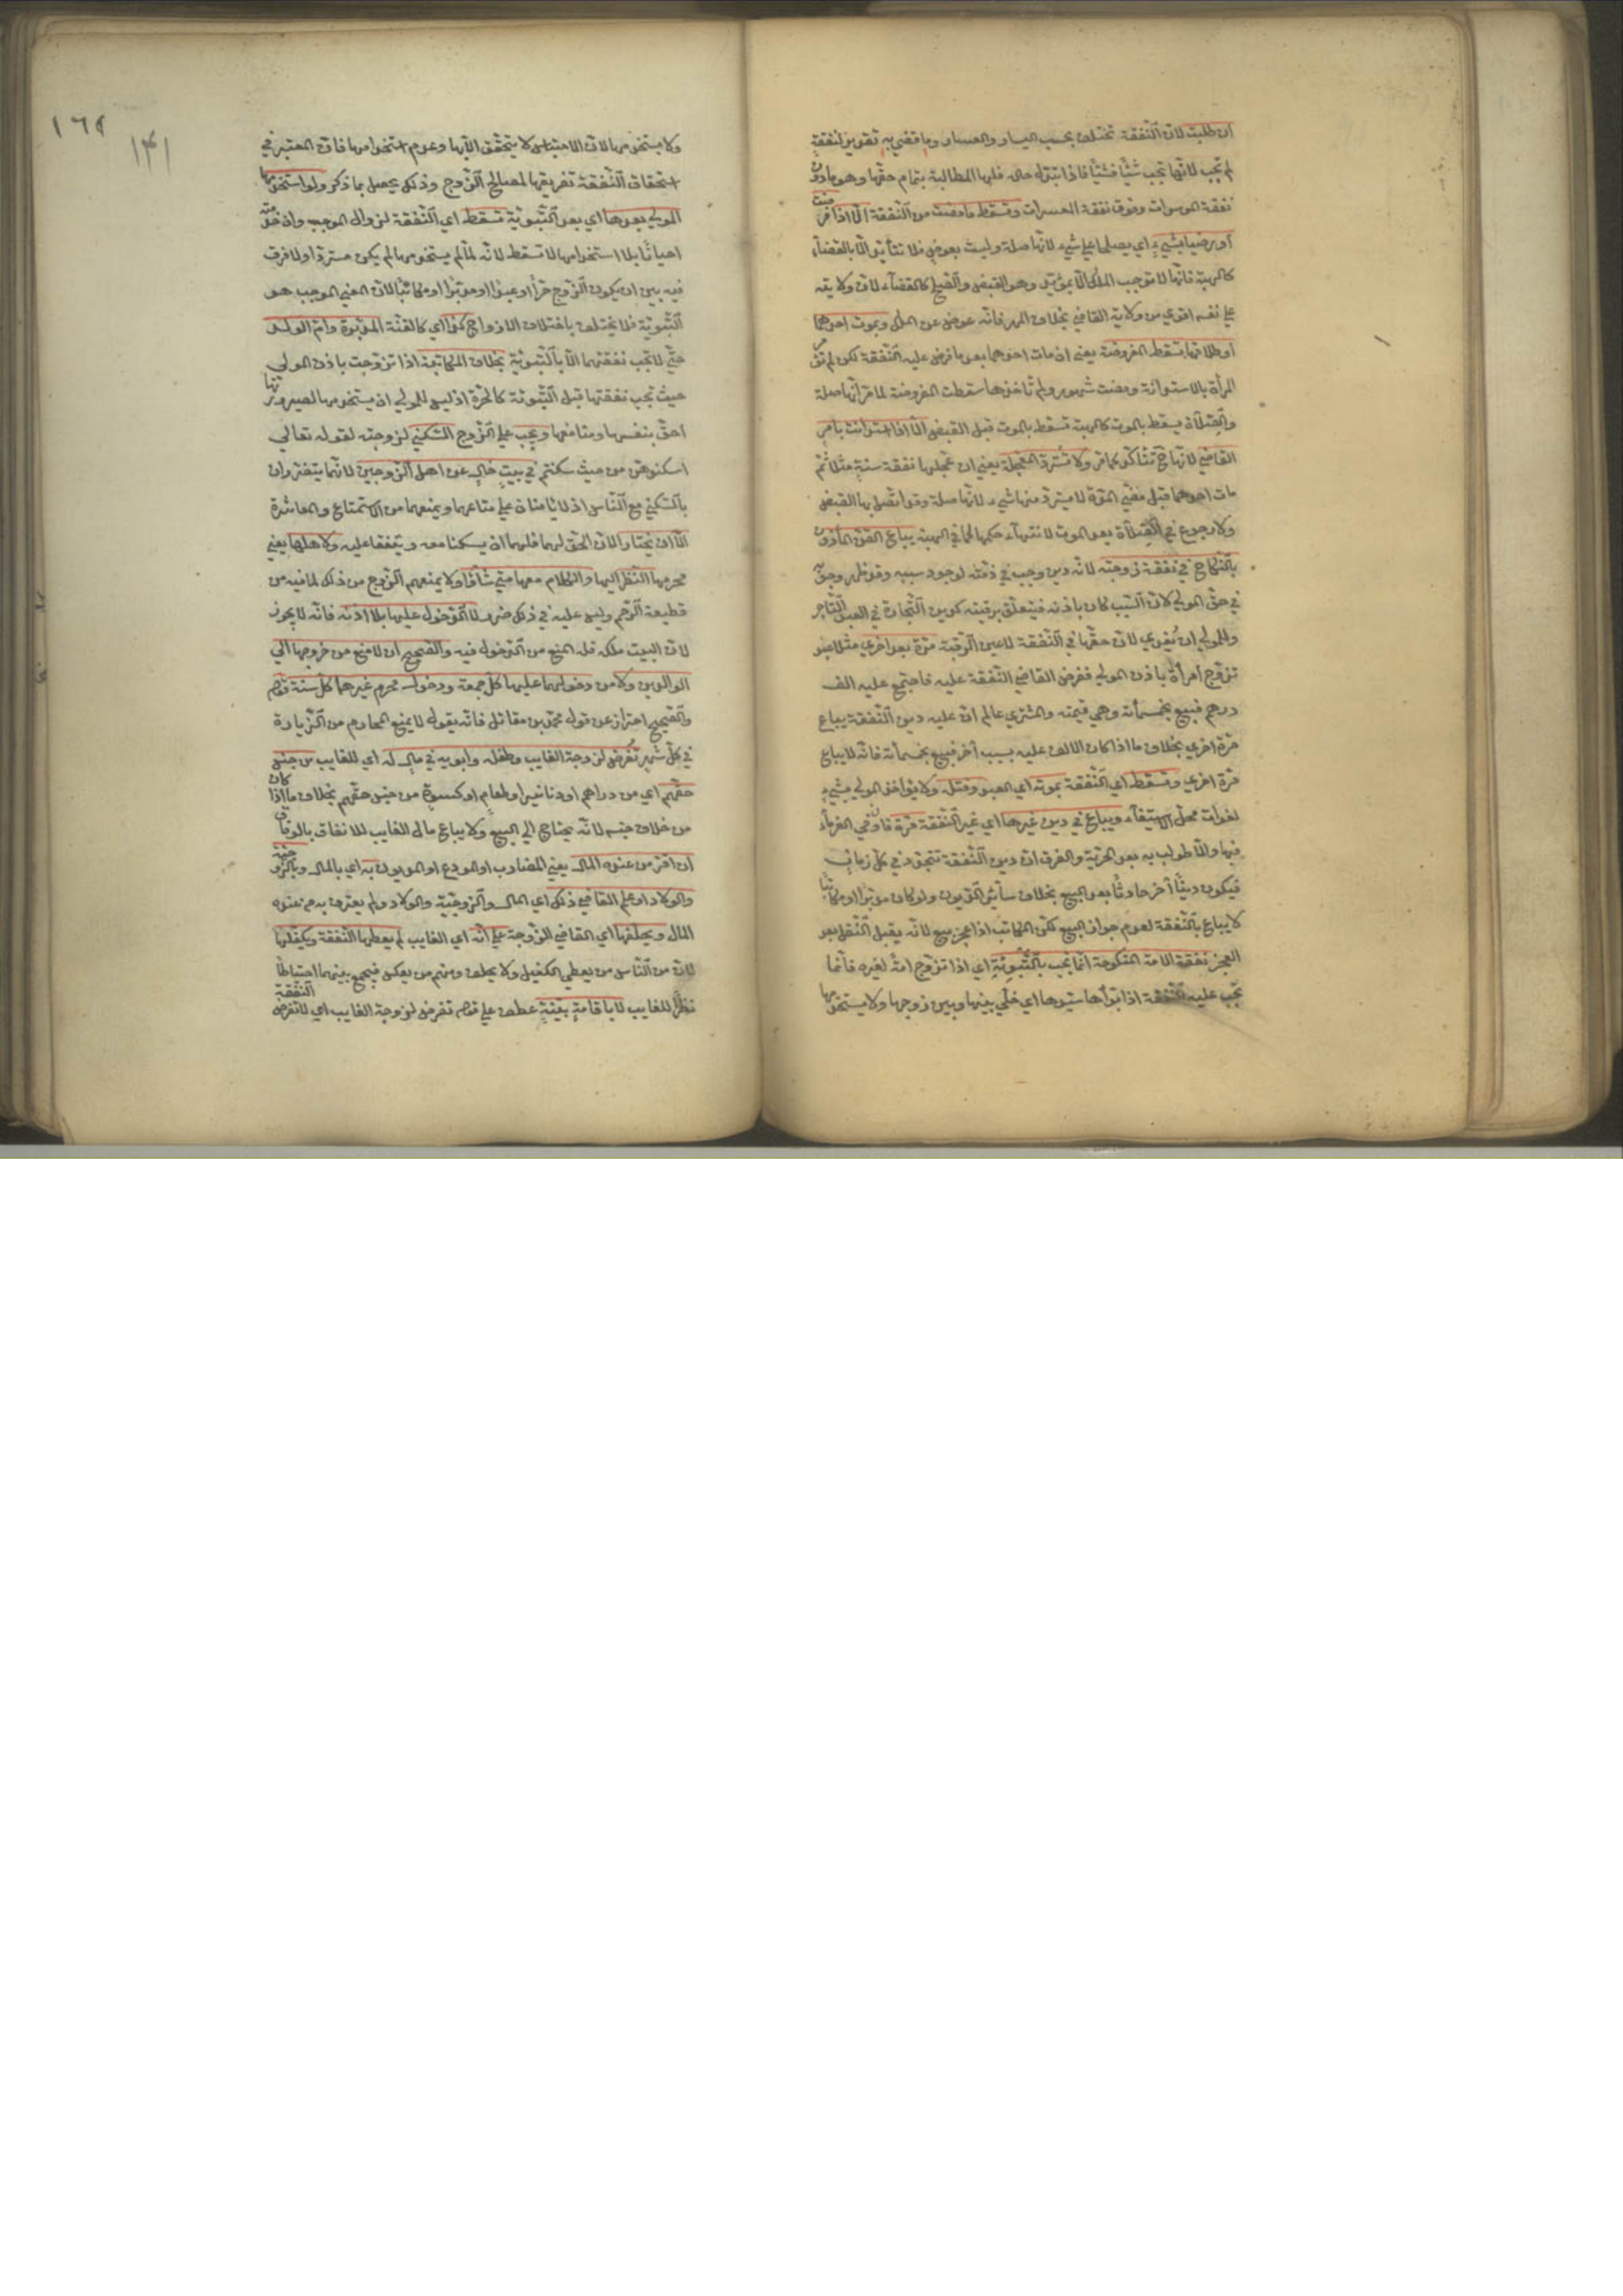 ان طلبت لان النفقة تختلف بحسب اليسار والعسار وما قضي به تقدير لنفقة
لم تجب لانها تجب شيئا فشيئا فاذا تبدل حاله فلها المطالبة بتمام حقها وهو ما دون
نفقة الموسرات وفوق نفقة المعسرات وتسقط ما مضت من النفقة الا اذا فرضت
او رضيا بشيء اي يصلحا علي شيء لانها صلة وليست بعوض فلا تتأكد الا بالقضاء
كالهبة فانها لا توجب الملك الا بمؤكد وهو القبض والصلح كالقضاء لان ولايته
علي نفسه اقوي من ولاية القاضي بخلاف المهر فانه عوض عن الملك وبموت احدهما
او طلاقها تسقط المفروضة يعني ان مات احدهما بعد ما فرض عليه النفقة لكن لم تؤمر
المرأة بالاستدانة ومضت شهور ولم تأخذها سقطت المفروضة لما مر انها صلة
والصلات تسقط بالموت كالهبة تسقط بالموت قبل القبض الا اذا استدانت بامر
القاضي لانها ح تتأكد كما مر ولا تسترد المعجلة يعني ان عجل لها نفقة سنة مثلا ثم
مات احدهما قبل مضي المدة لا يسترد منها شيء لانها صلة وقد اتصل بها القبض
ولا رجوع في الصلات بعد الموت لانتهاء حكمها كما في الهبة يباع القن المأذون
بالنكاح في نفقة زوجته لانه دين وجب في ذمته لوجود سببه وقد ظهر وجوبه
في حق المولي لان السبب كان باذنه فيتعلق برقبته كدين التجارة في العبد التاجر
وللمولي ان يفدي لان حقها في النفقة لا عين الرقبة مرة بعد اخري مثلا عبد
تزوج امرأة باذن المولي ففرض القاضي النفقة عليه فاجتمع عليه الف
درهم فبيع بخمسمأئة وهي قيمته والمشتري عالم ان عليه دين النفقة يباع
مرة اخري بخلاف ما اذا كان الالف عليه بسبب آخر فبيع بخمسمأئة فانه لا يباع
مرة اخري وتسقط اي النفقة بموته اي العبد وقتله ولا يؤاخذ المولي بشيء
لفوات محل الاستيفاء ويباع في دين غيرها اي غير النفقة مرة فان وفي الغرماء
فبها والا طولب به بعد الحرية والفرق ان دين النفقة تتجدد في كل زمان
فيكون دينا آخر حادثا بعد البيع بخلاف سائر الديون ولو كان مدبرا او مكاتبا
لا يباع بالنفقة لعدم جواز البيع لكن المكاتب اذا عجز بيع لانه يقبل النقل بعد
العجز نفقة الامة المنكوحة انما تجب بالتبوئة اي اذا تزوج امة لغيره فانما
تجب عليه النفقة اذا بوأها سيدها اي خلي بينها وبين زوجها ولا يستخدمها
١٦٩
١٤١
ولا يستخدمها لان الاحتباس لا يتحقق الا بها وعدم استخدامها فان المعتبر في
استحقاق النفقة تفريغها لمصالح الزوج وذلك يحصل بما ذكر ولو استخدمها
المولي بعدها اي بعد التبوئة تسقط اي النفقة لزوال الموجب وان خدمته
احيانا بلا استخدامها لا تسقط لانه لما لم يستخدمها لم يكن مستردا ولا فرق
فيه بين ان يكون الزوج حرا او عبدا او مدبرا او مكاتبا لان المعني الموجب هو
التبوئة فلا يختلف باختلاف الازواج كذا اي كالقنة المدبرة وام الولد
حتي لا تجب نفقتهما الا بالتبوئة بخلاف المكاتبة اذا تزوجت باذن المولي
حيث تجب نفقتها قبل التبوئة كالحرة اذ ليس للمولي ان يستخدمها لصيرورتها
احق بنفسها ومنافعها ويجب علي الزوج السكني لزوجته لقوله تعالي
اسكنوهن من حيث سكنتم في بيت خال عن اهل الزوجين لانهما يتضرران
بالسكني مع الناس اذ لا يأمنان علي متاعهما ويمنعهما من الاستمتاع والمعاشرة
الا ان يختارا لان الحق لهما فلهما ان يسكنا معه ويتفقا عليه ولاهلها يعني
محرمها النظر اليها والكلام معها متي شاؤا ولا يمنعهم الزوج من ذلك لما فيه من
قطيعة الرحم وليس عليه في ذلك ضرر لا الدخول عليها بلا اذنه فانه لا يجوز
لان البيت ملكه فله المنع من الدخول فيه والصحيح ان لا منع من خروجها الي
الوالدين ولا من دخولهما عليها كل جمعة ودخول محرم غيرهما كل سنة قوله
والصحيح احتراز عن قول محمد بن مقاتل فانه يقول لا يمنع المحارم من الزيارة
في كل شهر تفرض لزوجة الغايب وطفله وابويه في مال له اي للغايب من جنس
حقهم اي من دراهم او دنانير او طعام او كسوة من جنس حقهم بخلاف ما اذا كان
من خلاف جنسه لانه يحتاج الي البيع ولا يباع مال الغايب للانفاق بالوفاق
ان اقر من عنده المال يعني المضارب او المودع او المديون به اي بالمال وبالزوجية
والولاد او علم القاضي ذلك اي المال والزوجية والولاد ولم يعترف به من عنده
المال ويحلفها اي القاضي الزوجة علي انه اي الغايب لم يعطها النفقة ويكفلها
لان من الناس من يعطي الكفيل ولا يحلف ومنهم من يعكس فيجمع بينهما احتياطا
نظرا للغايب لا باقامة بينة عطف علي قوله تفرض لزوجة الغايب اي لا تفرض النفقة